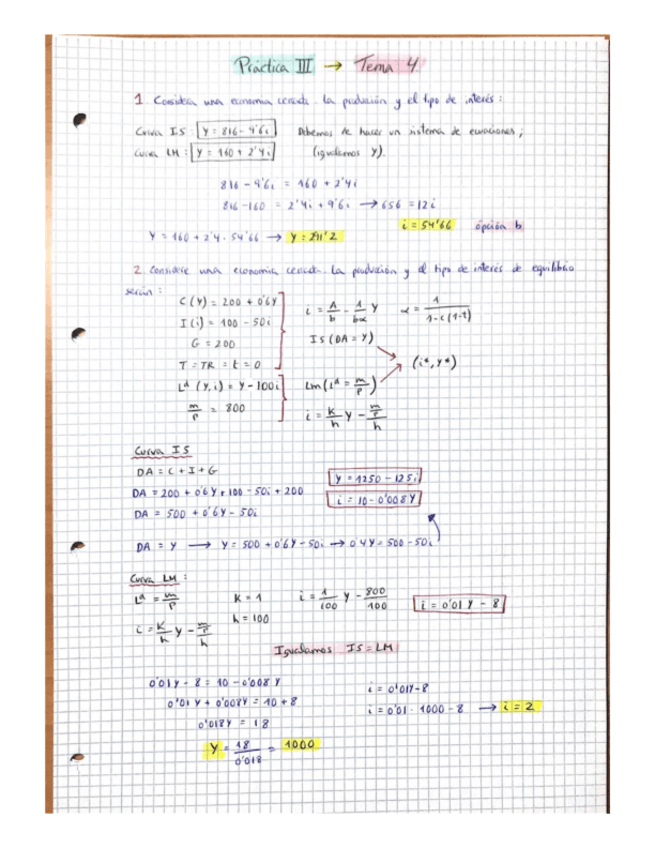 Práctica III → Tema 4
1 Considera una economía cerrada. La producción y el tipo de interés:
Curva IS: Y = 816 - 9'6i Debemos de hacer un sistema de ecuaciones;
Curva LM: Y = 160 + 2'4i (igualamos Y).
816 - 9'6i = 160 + 2'4i
816 - 160 = 2'4i + 9'6i → 656 = 12i
i = 54'66 opción b
Y = 160 + 2'4 · 54'66 → Y = 291'2
2. Considere una economía cerrada. La producción y el tipo de interés de equilibrio
serán:
C(Y) = 200 + 0'6Y
I(i) = 100 - 50i
G = 200
T = TR = t = 0
i = A/b - 1/bα Y α = 1/1-c(1-t)
IS (DA = Y)
(i*, Y*)
L^d (Y, i) = Y - 100i
m/p = 800
LM (L^d = m/p)
i = K/h Y - m/p/h
Curva IS
DA = C + I + G
DA = 200 + 0'6Y + 100 - 50i + 200
DA = 500 + 0'6Y - 50i
Y = 1250 - 125i
i = 10 - 0'008Y
DA = Y → Y = 500 + 0'6Y - 50i → 0'4Y = 500 - 50i
Curva LM:
L^d = m/p K = 1 i = 1/100 Y - 800/100 i = 0'01Y - 8
i = K/h Y - m/p/h h = 100
Igualamos IS = LM
0'01Y - 8 = 10 - 0'008Y
0'01Y + 0'008Y = 10 + 8
0'018Y = 18
Y = 18/0'018 = 1000
i = 0'01Y - 8
i = 0'01 · 1000 - 8 → i = 2